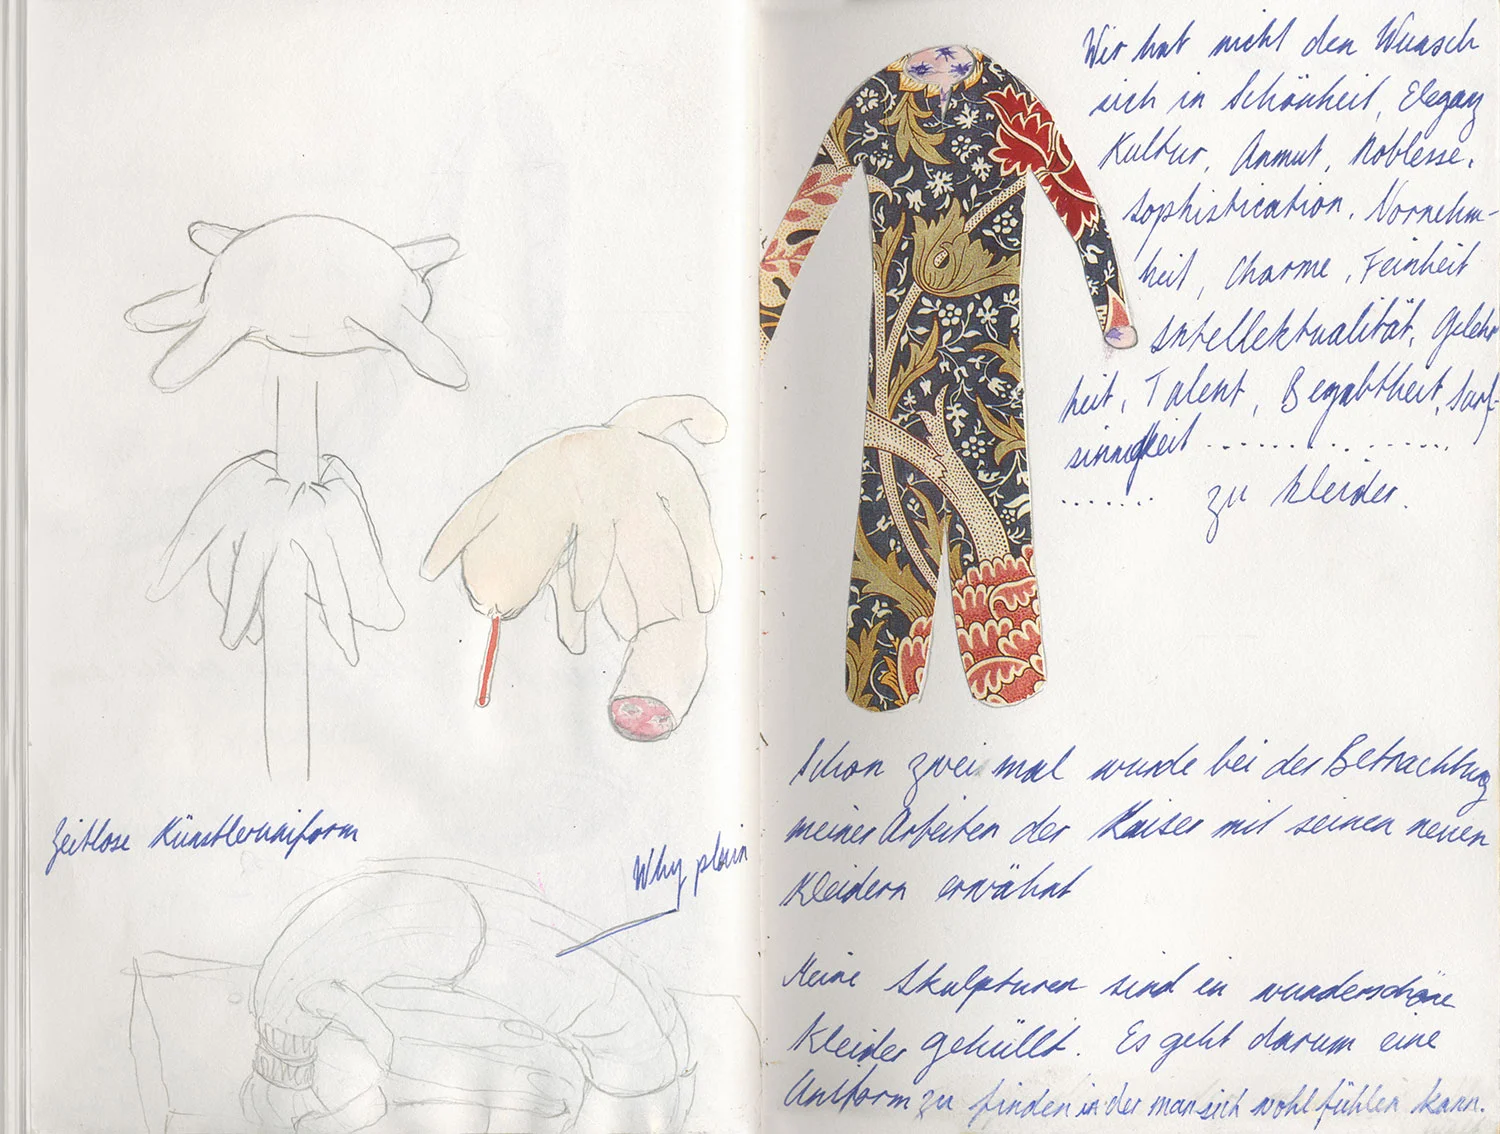 Zeitlose Künstleruniform
Why plain
Wer hat nicht den Wunsch
sich in Schönheit, Eleganz
Kultur, Anmut, Noblesse,
sophistication, Vornehm-
heit, Charme, Feinheit
Intellektualität, Gelehr
heit, Talent, Begabtheit, Scharf-
sinnigkeit ................
....... zu kleiden.
Schon zwei mal wurde bei der Betrachtung
meiner Arbeiten der Kaiser mit seinen neuen
Kleidern erwähnt
Meine Skulpturen sind in wunderschöne
Kleider gehüllt. Es geht darum eine
Uniform zu finden in der man sich wohl fühlen kann.